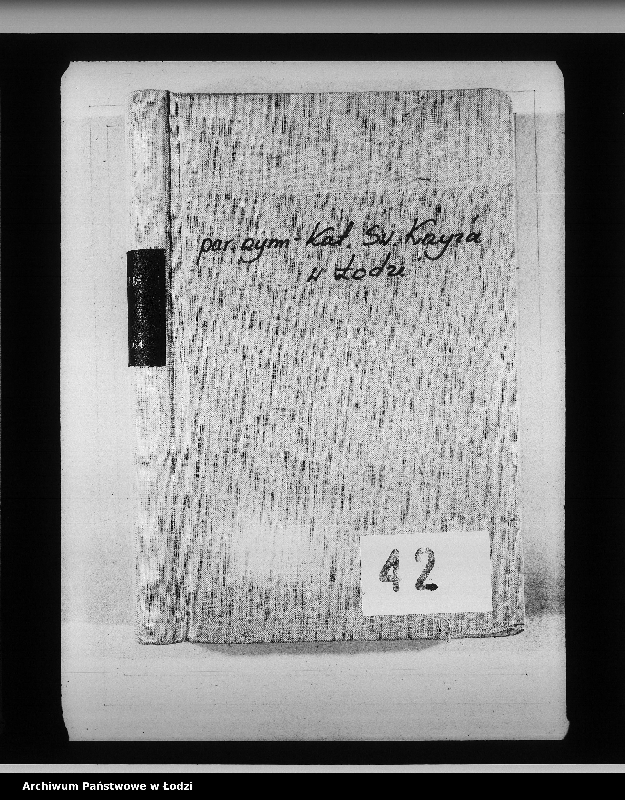 par. rym-kat. Św. Krzyża
w Łodzi
42
Archiwum Państwowe w Łodzi